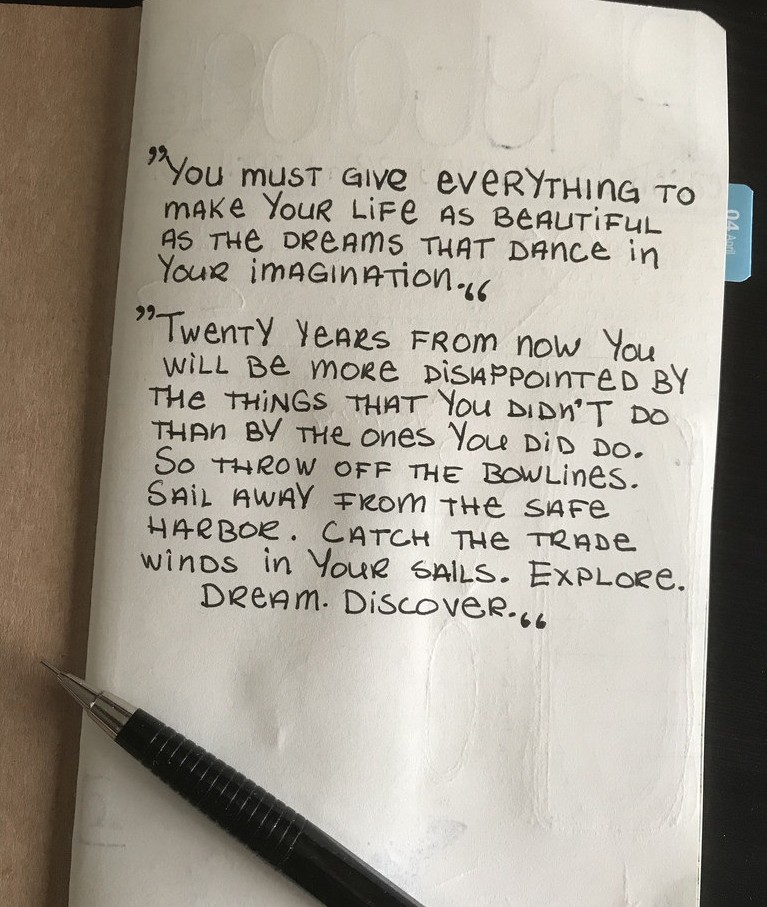 ”You must give everything to
make your life as beautiful
as the dreams that dance in
your imagination.“
”Twenty years from now you
will be more disappointed by
the things that you didn't do
than by the ones you did do.
So throw off the bowlines.
Sail away from the safe
harbor. Catch the trade
winds in your sails. Explore.
Dream. Discover.“
04 April